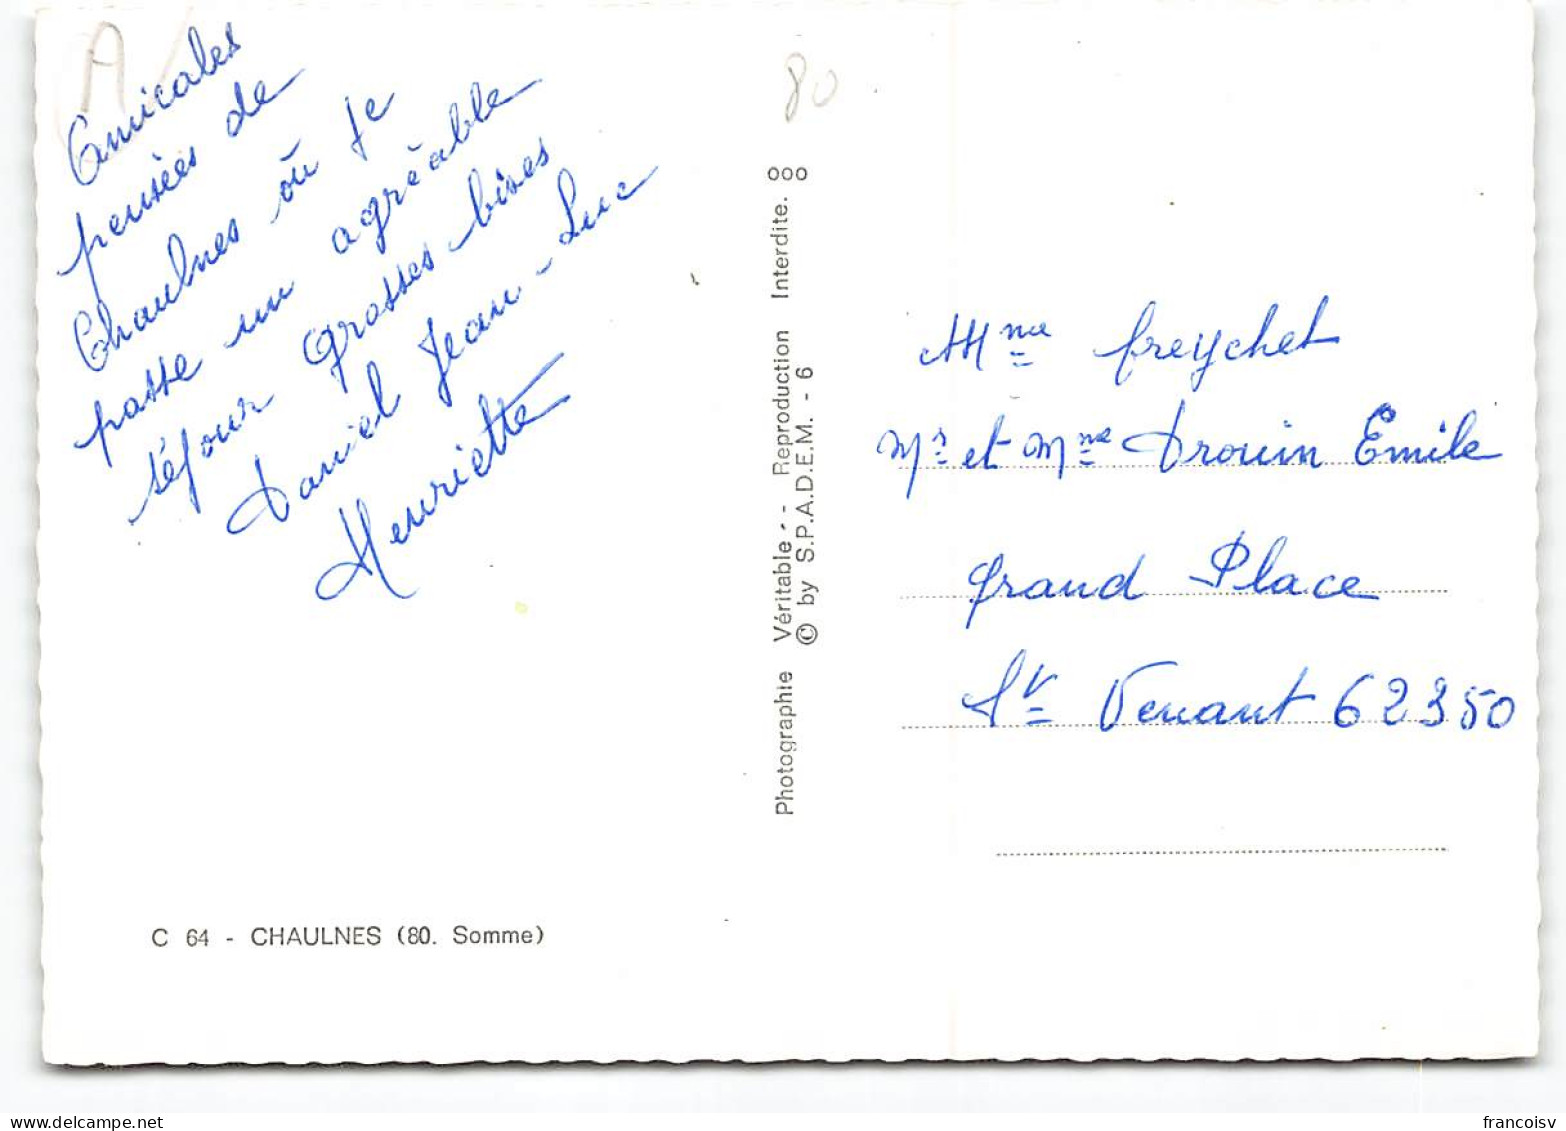 Amicales
pensées de
Chaulnes où je
passe un agréable
séjour grosses bises
Daniel Jean-Luc
Henriette
80
ooo
Photographie Véritable - Reproduction Interdite.
© by S.P.A.D.E.M. - 6
Mme Freychet
Mr et Mme Drouin Emile
Grand Place
St Venant 62350
C 64 - CHAULNES (80. Somme)
delcampe.net
francoisv